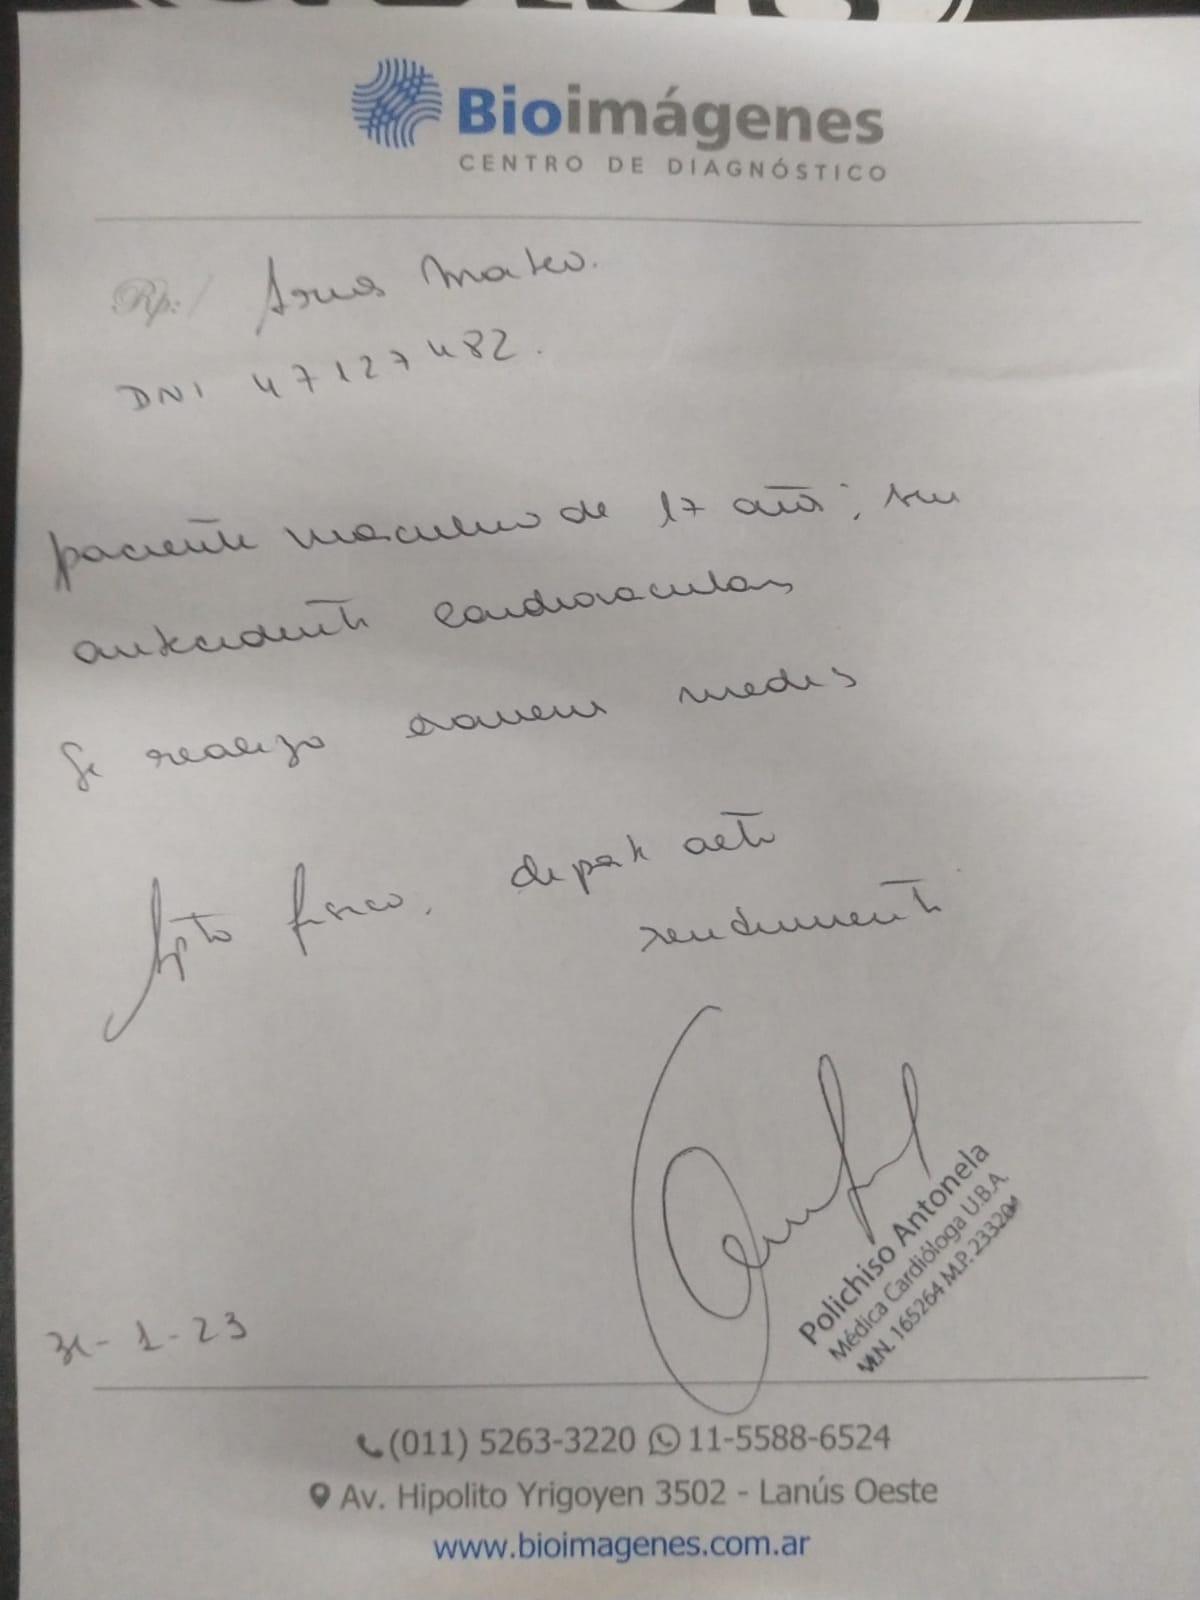 Bioimágenes
CENTRO DE DIAGNÓSTICO
Rp:/ Mateo.
DNI 47127482.
paciente masculino de 17 años; sin
antecedentes cardiovasculares
Se realizo examen
Apto fisico, deporte alto
rendimiento
Polichiso Antonela
Médica Cardióloga U.B.A.
M.N. 165264 M.P.
31-1-23
(011) 5263-3220 11-5588-6524
Av. Hipolito Yrigoyen 3502 - Lanús Oeste
www.bioimagenes.com.ar